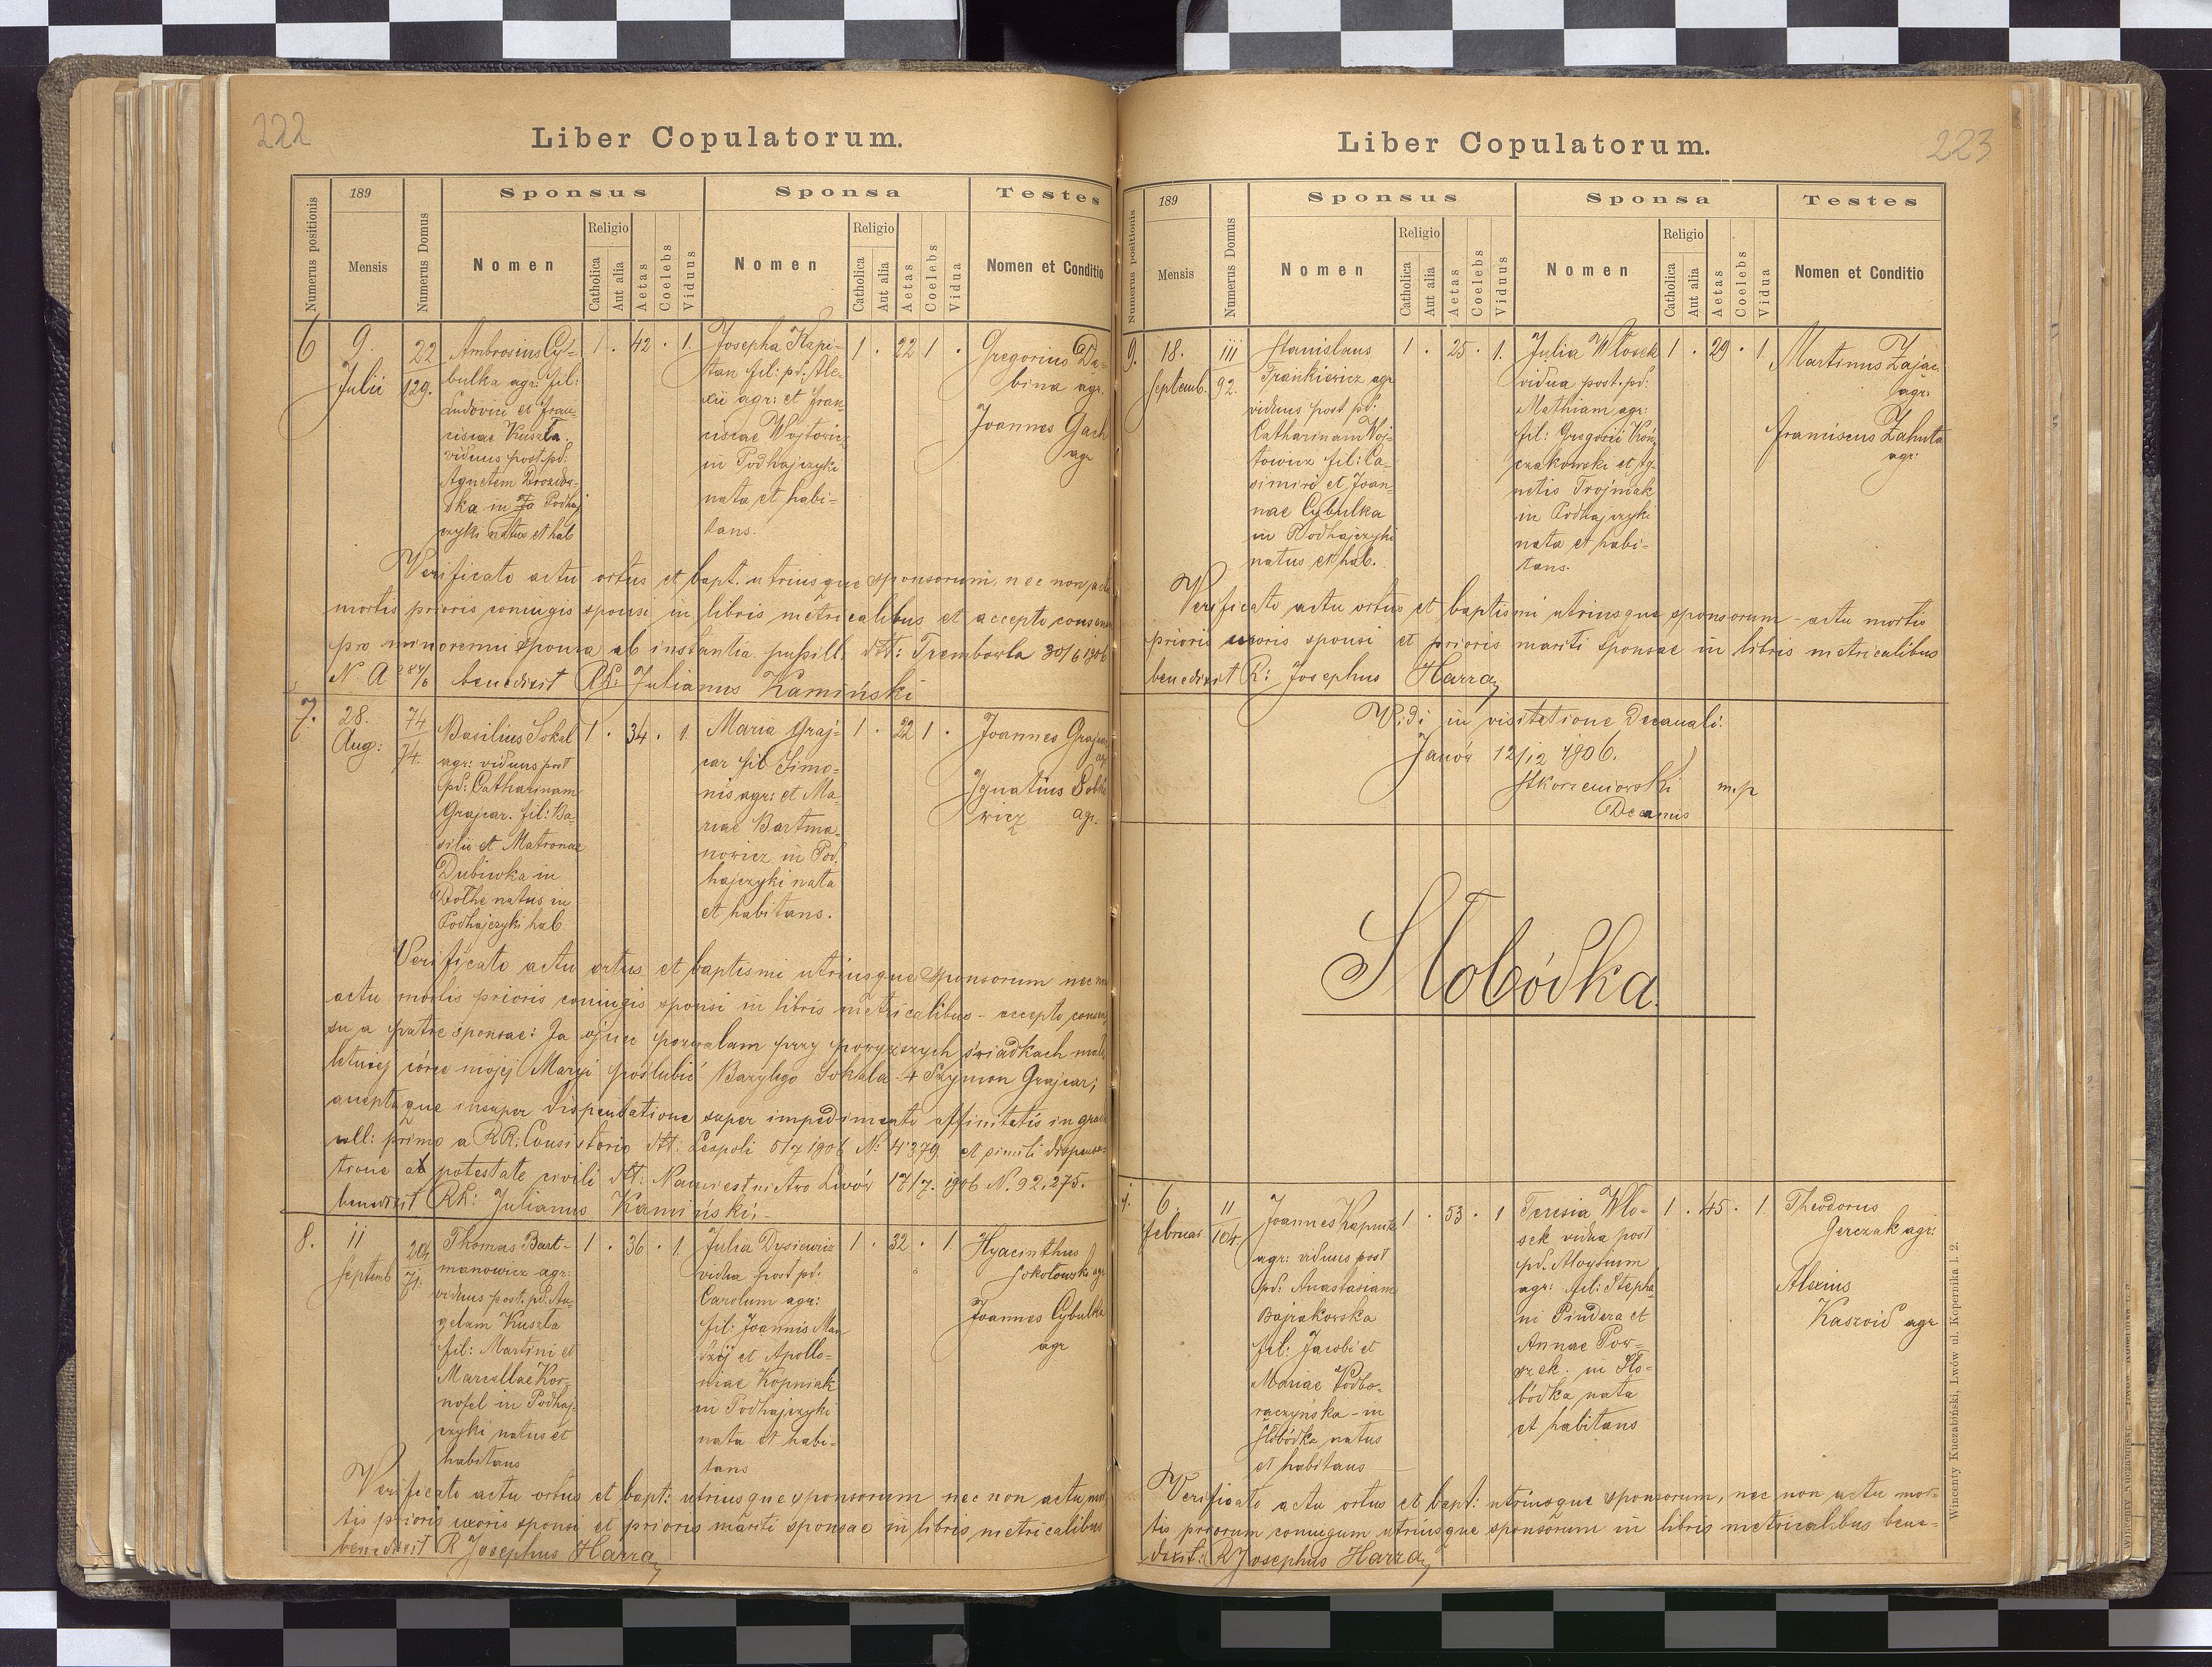 222
Liber Copulatorum.
Numerus positionis
189
Mensis
Numerus Domus
Sponsus
Nomen
Religio
Catholica
Aut alia
Aetas
Coelebs
Viduus
Sponsa
Nomen
Religio
Catholica
Aut alia
Aetas
Coelebs
Vidua
Testes
Nomen et Conditio
6
9.
Julii
22
129.
Ambrosius Cy-
bulka agr: fil:
Ludovici et Fran-
ciscae Kuszta
viduus post pd:
Agnetem
in Podhaj
czyki natus et hab
1 . 42 . 1.
Josepha Kapi-
tan fil: pd. Ale-
xii agr: et Fran-
ciscae Wojtowicz
in Podhajczyki
nata et habi-
tans.
1 . 22 1 .
Gregorius Da-
bina agr.
Joannes Gach
agr
Verificato actu ortus et bapt. utriusque sponsorum, nec non actu
mortis prioris coniugis sponsi in libris metricalibus et accepto consensu
pro minorenni sponsa ab instantia pupill. dtt: Trembowla 30/6 1906
N. A 284/6 benedixit RR: Julianus Kamiński
7.
28.
Aug:
74
74.
Basilius Sokal
agr: viduus post
pd: Catharinam
Grajcar. fil: Ba-
silii et Matronae
Dubiwka in
Dołhe natus in
Podhajczyki hab
1 . 34 . 1.
Maria Graj-
car fil Simo-
nis agr: et Ma-
riae Bartma-
nowicz in Pod.
hajczyki nata
et habitans.
1 . 22 1 .
Joannes Grajcar
agr
Ignatius
wicz agr.
Verificato actu ortus et baptismi utriusque sponsorum nec non
actu mortis prioris coniugis sponsi in libris metricalibus - accepto consen-
su a patre sponsae: Ja ojciec pozwalam przy powyższych świadkach mało
letniej córce mojej Maryi poślubić Bazylego Sokala + Szymon Grajcar;
acceptaque insuper dispensatione super impedimento affinitatis in gradu
coll: primo a RR: Consistorio dtt: Leopoli 5/7 1906 N: 4379 et simili dispensa-
tione ab potestate civili dtt: Namiestnictwo Lwów 17/7. 1906 N. 92.275.
benedixit RR: Julianus Kamiński; -
8.
11
Septemb
204
71.
Thomas Bart-
manowicz agr:
viduus post. pd. An-
gelam Kuszta
fil: Martini et
Marcellae Kor-
nofel in Podhaj-
czyki natus et
habitans
1 . 36 . 1.
Julia Dysiewicz
vidua post pd:
Carolum agr:
fil: Joannis Man
dzij et Apollo-
niae Kopniak
in Podhajczyki
nata et habi-
tans
1 . 32 . 1.
Hyacinthus
Sokołowski agr
Joannes Cybulka
agr
Verificato actu ortus et bapt: utriusque sponsorum nec non actu mor
tis prioris uxoris sponsi et prioris mariti sponsae in libris metricalibus
benedixit R Josephus Harra
223
Liber Copulatorum.
Numerus positionis
189
Mensis
Numerus Domus
Sponsus
Nomen
Religio
Catholica
Aut alia
Aetas
Coelebs
Viduus
Sponsa
Nomen
Religio
Catholica
Aut alia
Aetas
Coelebs
Vidua
Testes
Nomen et Conditio
9.
18.
Septemb.
111
92.
Stanislaus
Frankiewicz agr
viduus post pd:
Catharinam Woj-
towicz fil: Ca-
simiri et Joan-
nae Cybulka
in Podhajczyki
natus et hab.
1 . 25 . 1.
Julia Włosek
vidua post. pd:
Mathiam agr:
fil: Gregorii
czakowski et Ag-
netis Trojniak
in Podhajczyki
nata et habi-
tans.
1 . 29 . 1.
Martinus Zając
agr.
Franciscus Zahuta
agr:
Verificato actu ortus et baptismi utriusque sponsorum - actu mortis
prioris uxoris sponsi et prioris mariti sponsae in libris metricalibus
benedixit R: Josephus Harra
Vidi in visitatione Decanali.
Janów 12/12 1906.
Skorzeniowski m.p
Decanus
Słobódka.
1.
6.
Februar.
11
104
Joannes Kapusta
agr: viduus post
pd: Anastasiam
Bajrakowska
fil: Jacobi et
Mariae Podho-
raczyńska - in
Słobódka natus
et habitans
1 . 53 . 1
Teresia Wło-
sek vidua post
pd. Aloysium
agr: fil: Stepha
ni Pindera et
Annae Pow-
rzek. in Sło-
bódka nata
et habitans
1 . 45 . 1.
Theodorus
Gerczak agr:
Alexius
Kaszoid agr
Verificato actu ortus et bapt: utriusque sponsorum, nec non actu mor-
tis priorum coniugum utriusque sponsorum in libris metricalibus bene-
dixit: R Josephus Harra
Wincenty Kuczabiński, Lwów ul. Kopernika l. 2.